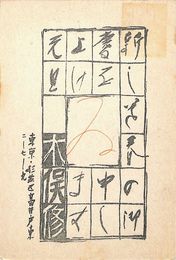 新しき の御
慶を 申し
上げ ます
元旦
木俣修
東京・杉並区高井戸東
二ー七ー